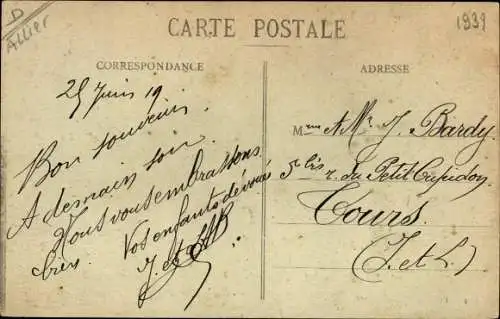 D
Allier
1939
CARTE POSTALE
CORRESPONDANCE
ADRESSE
25 Juin 19
Bon souvenir.
A demain soir
Nous vous embrassons
bien. Vos enfants dévoués
J. et
Mme A Mr J. Bardy
5 bis r. du Petit Cupidon
Tours.
(I. et L.)